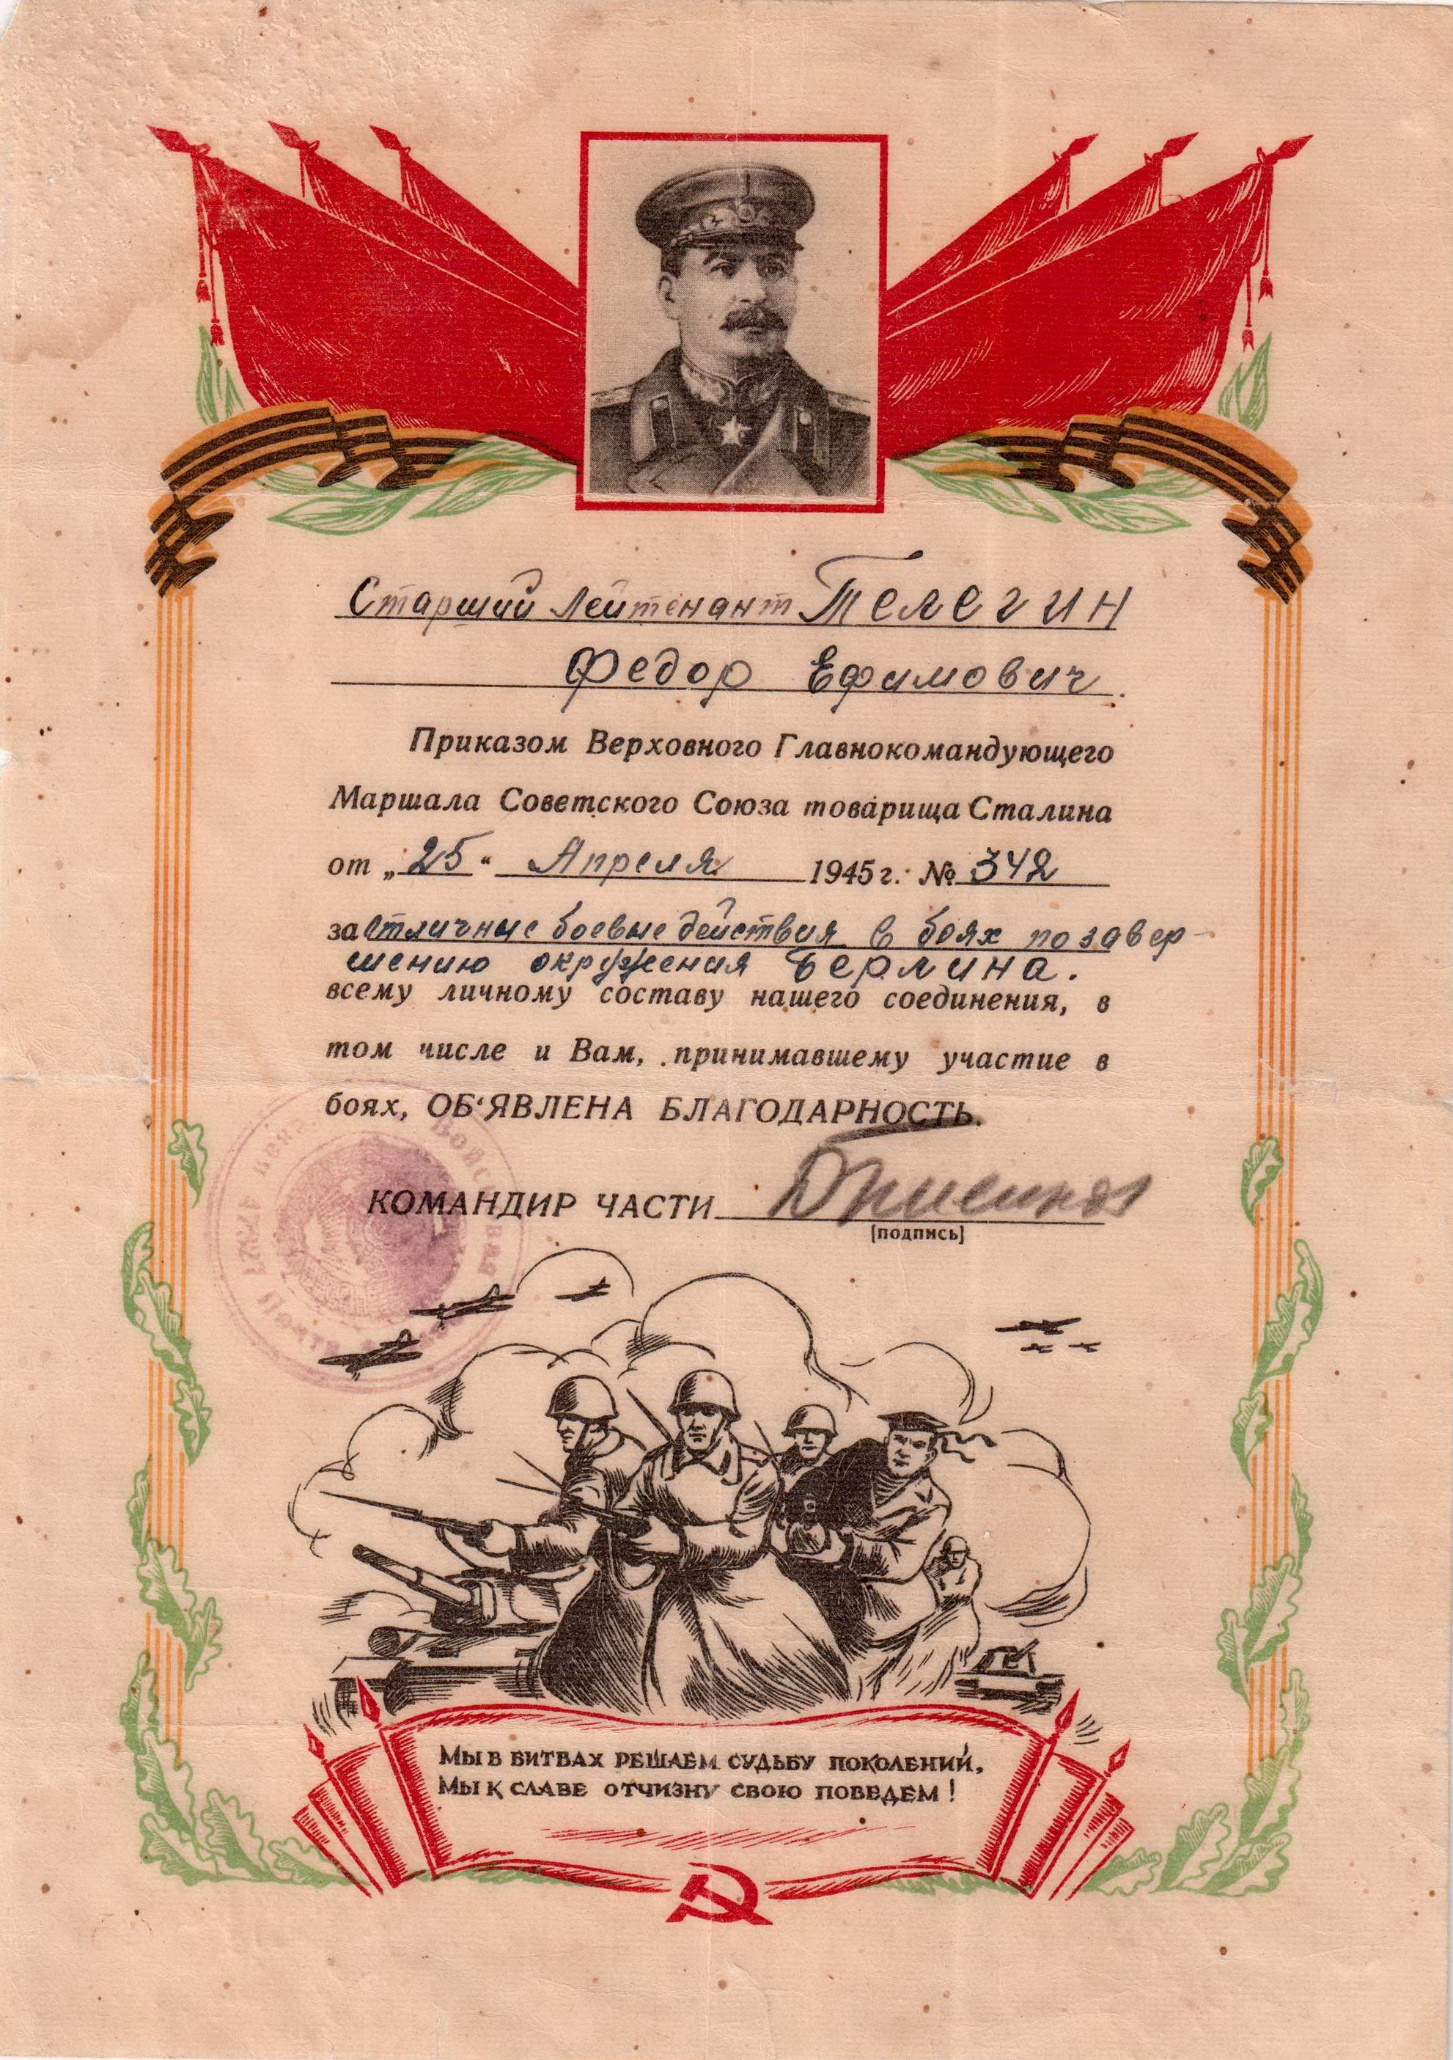 Старший лейтенант Телегин
Федор Ефимович.
Приказом Верховного Главнокомандующего
Маршала Советского Союза товарища Сталина
от „25“ Апреля 1945 г. № 342
за отличные боевые действия в боях по завер-
шению окружения Берлина.
всему личному составу нашего соединения, в
том числе и Вам, принимавшему участие в
боях, ОБ'ЯВЛЕНА БЛАГОДАРНОСТЬ.
КОМАНДИР ЧАСТИ
[подпись]
МЫ В БИТВАХ РЕШАЕМ СУДЬБУ ПОКОЛЕНИЙ,
МЫ К СЛАВЕ ОТЧИЗНУ СВОЮ ПОВЕДЕМ!